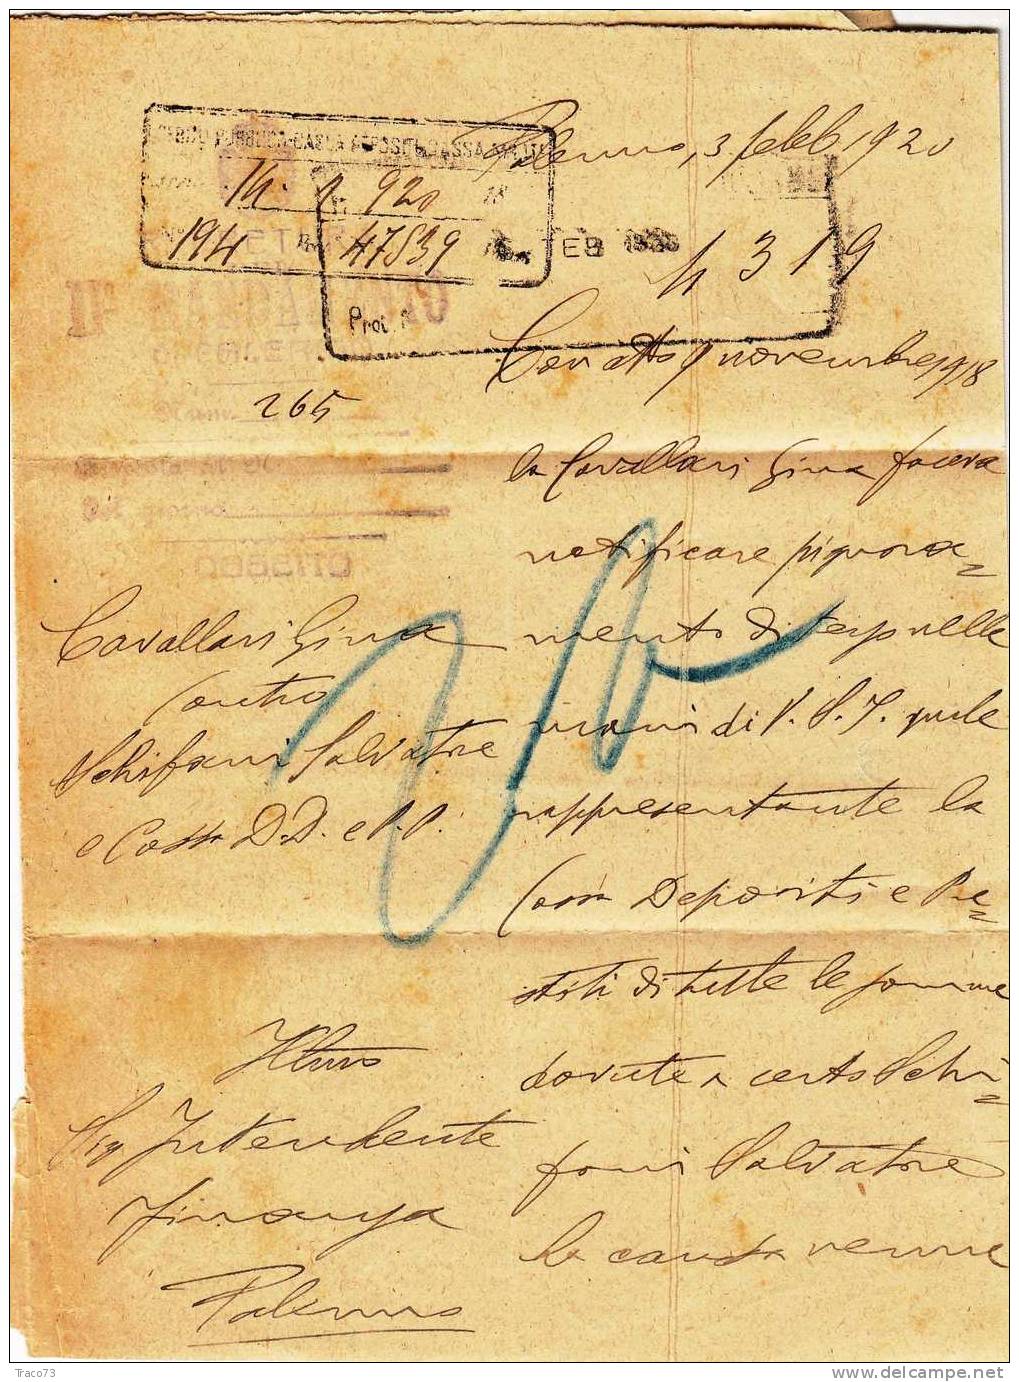 Palermo, 3 febb 1920
DEBITO PUBBLICO CASSA DEPOSITI
14. 920 18
194 47539 FEB
Prot. N
4319
265
OGGETTO
Cavallari Gina
contro
Schifani Salvatore
e Cassa D.D. e P.P.
Illmo
Sig Intendente
Finanza
Palermo
Con atto 9 novembre 1918
la Cavallari Gina faceva
notificare pignora=
mento di terzo nelle
mani di V. S. I. quale
rappresentante la
Cassa Depositi e Pre=
stiti di tutte le somme
dovute a certo Schi=
fani Salvatore
la causa venne
Traco73
www.delcampe.net